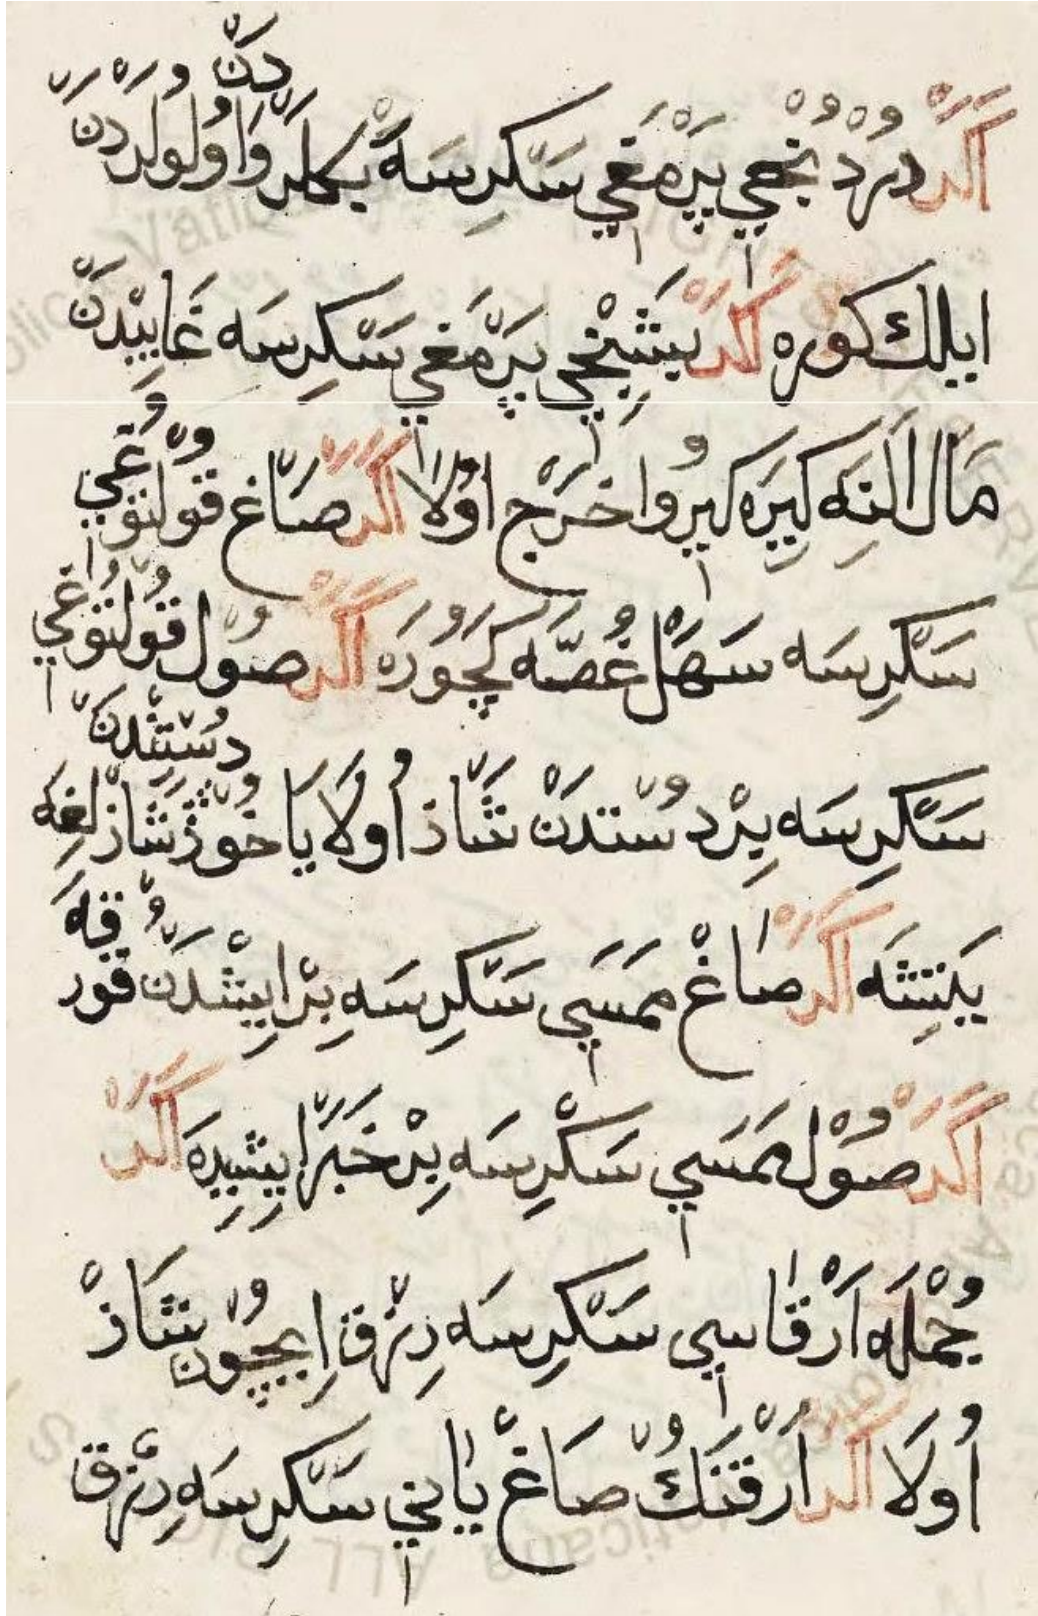 اَكَرْ دُرْدُنْجِي پَرْمَغِي سَكِرسَه بَكلَرْ وَاُولُولَرْدَنْ دَنْ
ايلك كوره اَكَرْ بَشِنْجِي پَرْمَغِي سَكِرِسَه غَايِبْدَنْ
مَال اَلنَه كِيرَه كيرو خَرْج اُولا اَكَرْ صَاغ قولتوُغِي
سَكِرِسَه سَهَل غُصَّه كَچُورَه اَكَرْ صُول قُولتُوغِي
سَكِرِسَه بِرْ دُسْتندَنْ شَاذ اُولَا يَا خُوذْ شَاذلغِه دُسْتِنْدَنْ
يَتِشَه اَكَرْ صَاغْ مَمَسِي سَكِرِسَه بِرْ اِيشْدَنْ قُورقَه
اَكَرْ صُوْل مَمَسِي سَكِرِسَه بِرْ خَبَرْ اِيشِيدَه اَكَرْ
جُمْلَه اَرْقَاسِي سَكِرِسَه رِزْق اِيچُونْ شَاذْ
اُولَا اَكَرْ اَرْقَنكْ صَاغْ يَانِي سَكِرِسَه رِزْق